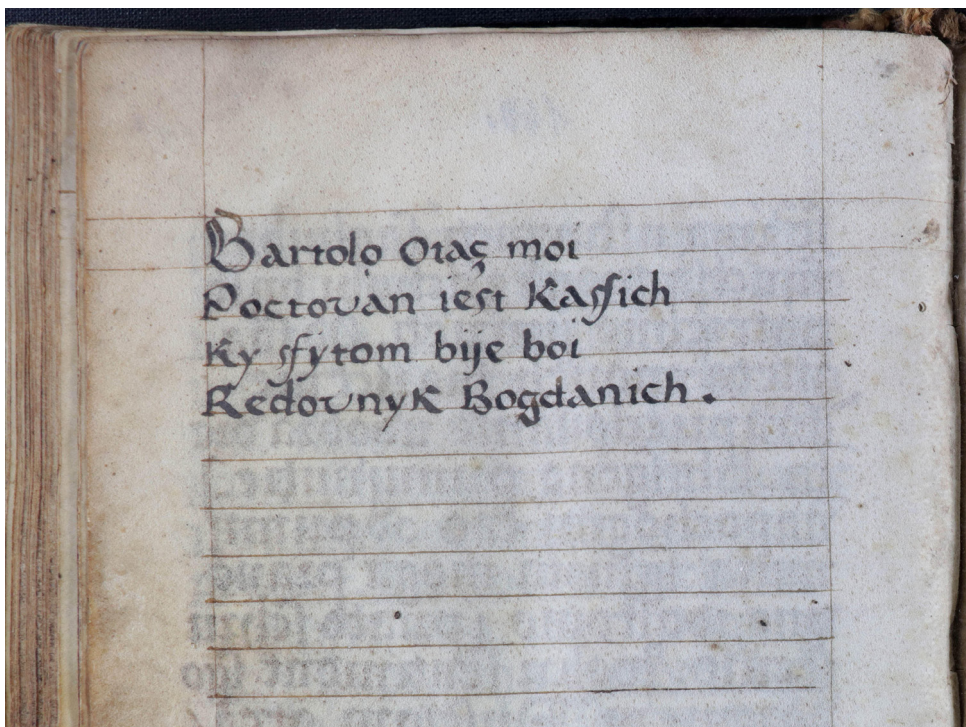 Bartolo Otaç moi
Poctovan iest Kassich
Ky sfytom bije boi
Redovnyk Bogdanich.